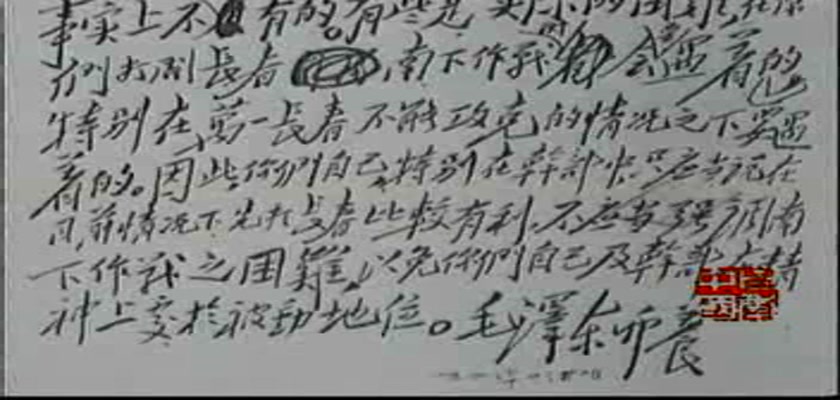 事实上不有的。有些是实际的困难,在你
们打到長春南下作战的都会遇着的
特别在萬一長春不能攻克的情况之下要遇
着的。因此,你们自己,特别在幹部中只应当说在
目前情况下先打長春比較有利,不应当强调南
下作战之困難,以免你们自己及幹部在精
神上处於被動地位。毛澤东 卯養